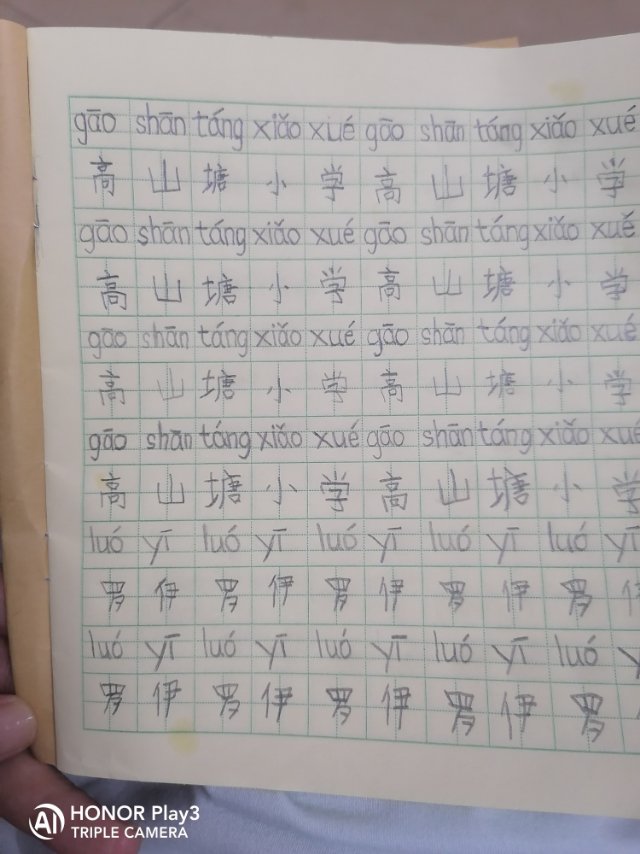 gāo shān táng xiǎo xué gāo shān táng xiǎo xué
高 山 塘 小 学 高 山 塘 小 学
gāo shān táng xiǎo xué gāo shān táng xiǎo xué
高 山 塘 小 学 高 山 塘 小 学
gāo shān táng xiǎo xué gāo shān táng xiǎo xué
高 山 塘 小 学 高 山 塘 小 学
gāo shān táng xiǎo xué gāo shān táng xiǎo xué
高 山 塘 小 学 高 山 塘 小 学
luó yī luó yī luó yī luó yī luó yī
罗 伊 罗 伊 罗 伊 罗 伊 罗
luó yī luó yī luó yī luó yī luó
罗 伊 罗 伊 罗 伊 罗 伊 罗
HONOR Play3
TRIPLE CAMERA